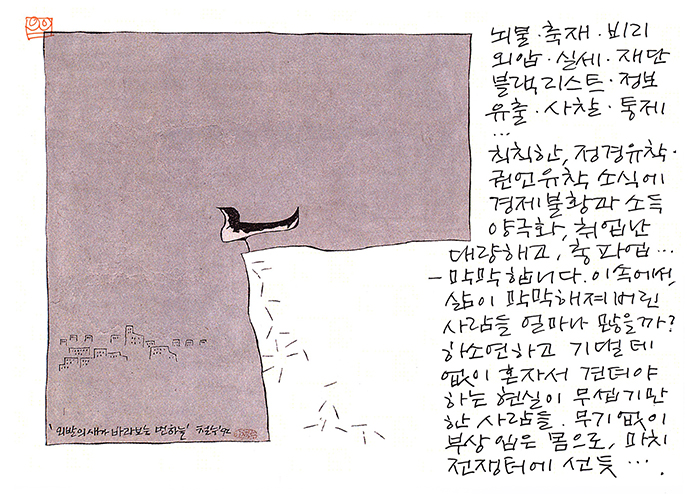 뇌물·축재·비리
외압·실세·재단
블랙리스트·정보
유출·사찰·통제
...
칙칙한, 정경유착·
권언유착 소식에
경제불황과 소득
양극화, 취업난
대량해고, 총파업...
- 막막합니다. 이속에서,
삶이 막막해져버린
사람들 얼마나 많을까?
하소연하고 기댈데
없이 혼자서 견뎌야
하는 현실이 무섭기만
한 사람들. 무기없이
부상입은 몸으로, 마치
전쟁터에 선듯....
'외박의새가 바라보는 먼하늘' 철수'92